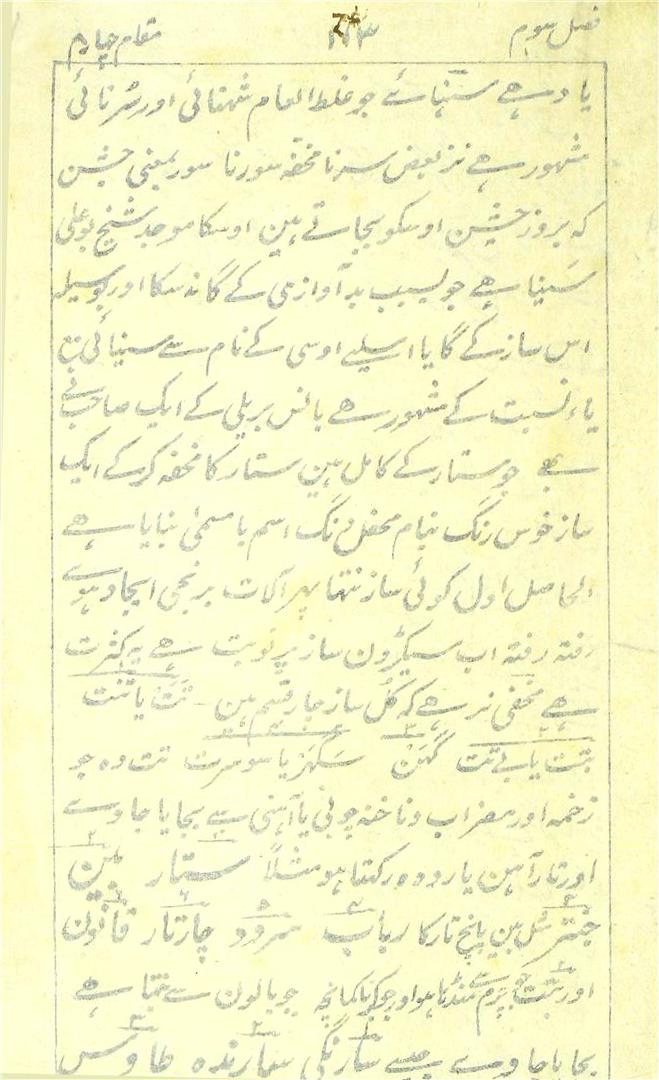 فصل سوم ۱۱۳ مقام چہارم
یاد رہے سنہائے جو غلط العام شہنائی اور سُرنائی
مشہور ہے نزد بعض سرنا مخفف سورنا سور بمعنی جشن
کہ بروز جشن اوسکو بجاتے ہین اوسکا موجد شیخ بو علی
سَینا ہے جو بسبب بد آوازی کے گا نہ سکا اور بوسیلہ
اس ساز کے گایا اسلیے اوسی کے نام سے سینائی مع
یاء نسبت کے مشہور ہے بانس بریلی کے ایک صاحب نے
جو ستار کے کامل ہین ستار کا مخفف کر کے ایک
ساز خوس رنگ بنام محفل رنگ اسم بامسمیٰ بنایا ہے
الحاصل اول کوئی ساز نتہا پہر آلات برنجی ایجاد ہوے
رفتہ رفتہ اب سیکڑون ساز پر نوبت ہے یہ کثرت
ہے مخفی نر ہے کہ کل ساز چار قسیم ہین - تَت یا تنت
بتت یا بے تت گہن سکہر یا سوسرت تت وہ جو
زخمہ اور مضراب و ناخنہ چوبی یا آہنی سے بجایا جاوے
اور تار آہن یا رودہ رکہتا ہو مثلاً ستار بین
جنتر مثل بین پانچ تار کا رباب سرود چارتار قانون
اور بتت جو چرم سے منڈہا ہو اور جو کمانچہ جو بالون سے بنتا ہے
بجایا جاوے جیسے سارنگی سارندہ طاؤس